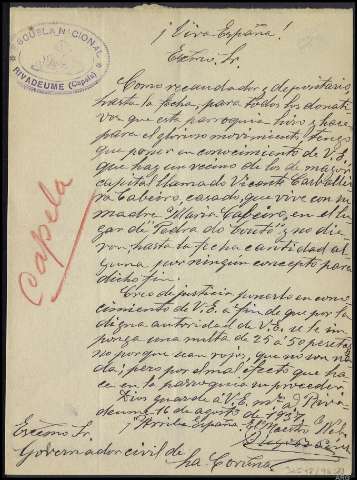 ¡Viva España!
ESCUELA NACIONAL
RIVADEUME (Capela)
Exmo. Sr.
Como recaudador y depositario,
hasta la fecha, para todos los donati-
vos que esta parroquia hizo y hace
para el glorioso movimiento, tengo
que poner en conocimiento de V.E.
que hay un vecino de los de mayor
capital llamado Vicente Carballei-
ra Cabeiro, casado, que vive con su
madre María Cabeiro, en el lu-
gar de "Pedra do Couto" y no die-
ron hasta la fecha cantidad al-
guna por ningún concepto para
dicho fin.
Creo de justicia ponerlo en cono-
cimiento de V.E. a fin de que por la
digna autoridad de V.E. se le im-
ponga una multa de 25 a 50 pesetas
no porque sean rojos, que no son na-
da; pero por el mal efecto que ha-
ce en la parroquia su proceder.
Dios guarde a V.E. m.ª a.ª Riva-
deume 16 de agosto de 1937
¡Arriba España! El Maestro Nal.
Capela
Excmo. Sr.
Gobernador civil de
La Coruña